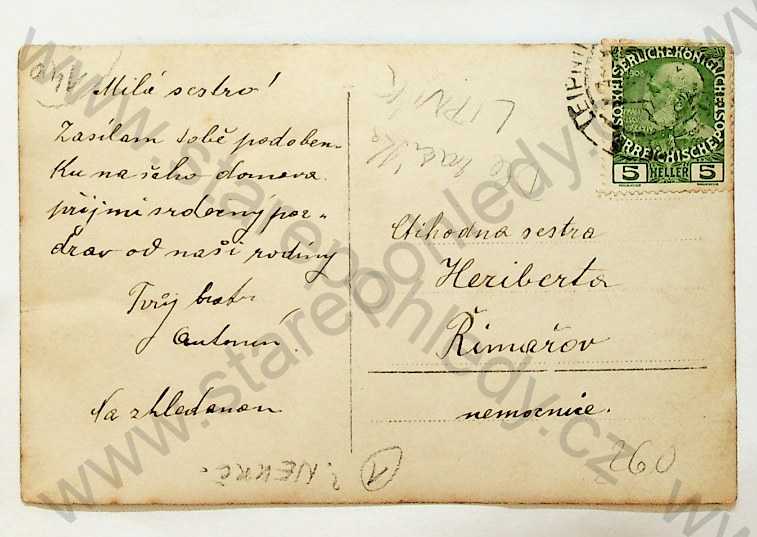 Milá sestro!
Zasílam tobě podoben-
ku našeho domova
přijmi srdečný poz-
drav od naši rodiny
Tvůj bratr
Antonín!
Na shledanou
Ctihodna sestra
Heriberta
Řimařov
nemocnice.
LIPNIK
260
1
KAISERLICHE KÖNIGLICHE
ÖSTERREICHISCHE POST
5 HELLER 5
LEIPNI
www.starepohledy.cz